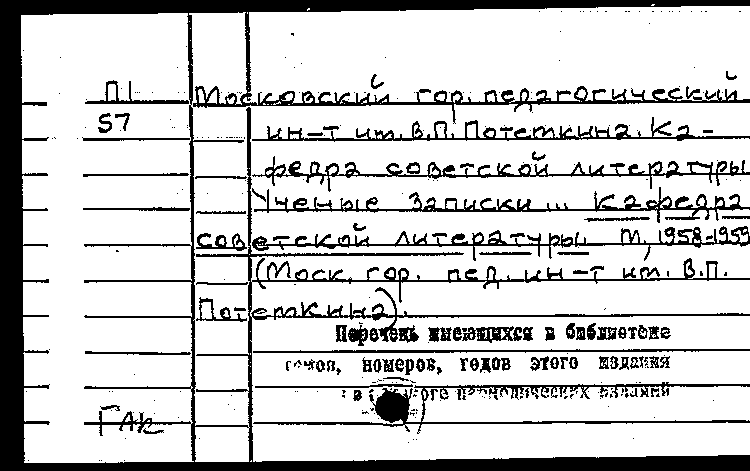 П1 Московский гор. педагогический
57 ин-т им. В.П. Потемкина. Ка-
федра советской литературы
Ученые записки... Кафедра
советской литературы. М., 1958-1959
(Моск. гор. пед. ин-т им. В.П.
Потемкина).
Перечень имеющихся в библиотеке
томов, номеров, годов этого издания
в каталоге периодических изданий
ГАК